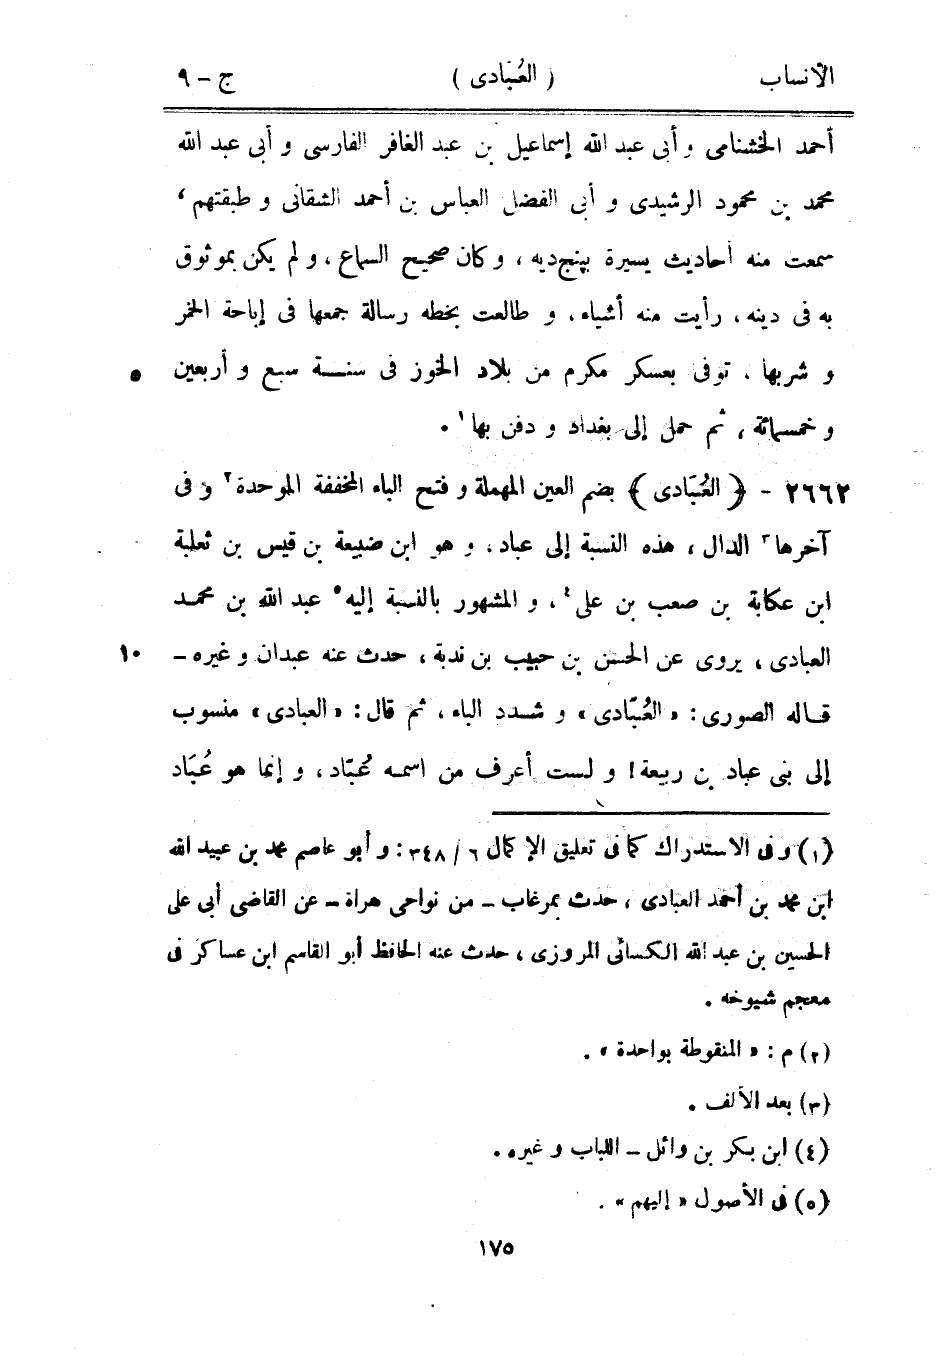 الأنساب ( العُبَادى ) ج - ٩
أحمد الخشنامى و أبى عبد الله إسماعيل بن عبد الغافر الفارسى و أبى عبد الله
محمد بن محمود الرشيدى و أبى الفضل العباس بن أحمد الشقانى و طبقتهم ،
سمعت منه أحاديث يسيرة بپنج‌ديه ، و كان صحيح السماع ، و لم يكن بموثوق
به فى دينه ، رأيت منه أشياء ، و طالعت بخطه رسالة جمعها فى إباحة الخمر
و شربها ، توفى بعسكر مكرم من بلاد الخوز فى سنة سبع و أربعين ٥
و خمسمائة ، ثم حمل إلى بغداد و دفن بها ١ .
٢٦٦٢ - ﴿ العُبَادى ﴾ بضم العين المهملة و فتح الباء المخففة الموحدة ٢ و فى
آخرها ٣ الدال ، هذه النسبة إلى عباد ، و هو ابن ضبيعة بن قيس بن ثعلبة
ابن عكابة بن صعب بن على ٤ ، و المشهور بالنسبة إليه ٥ عبد الله بن محمد
العبادى ، يروى عن الحسن بن حبيب بن ندبة ، حدث عنه عبدان و غيره - ١٠
قاله الصورى : « العُبّادى » و شدد الباء ، ثم قال : « العبادى » منسوب
إلى بنى عباد بن ربيعة ! و لست أعرف من اسمه عُبّاد ، و إنما هو عُبَاد
(١) و فى الاستدراك كما فى تعليق الإكمال ٦ / ٣٤٨ : و أبو عاصم محمد بن عبيد الله
ابن محمد بن أحمد العبادى ، حدث بمرغاب - من نواحى هراة - عن القاضى أبى على
الحسين بن عبد الله الكسائى المروزى ، حدث عنه الحافظ أبو القاسم ابن عساكر فى
معجم شيوخه .
(٢) م : « المنقوطة بواحدة » .
(٣) بعد الألف .
(٤) ابن بكر بن وائل - اللباب و غيره .
(٥) فى الأصول « إليهم » .
١٧٥